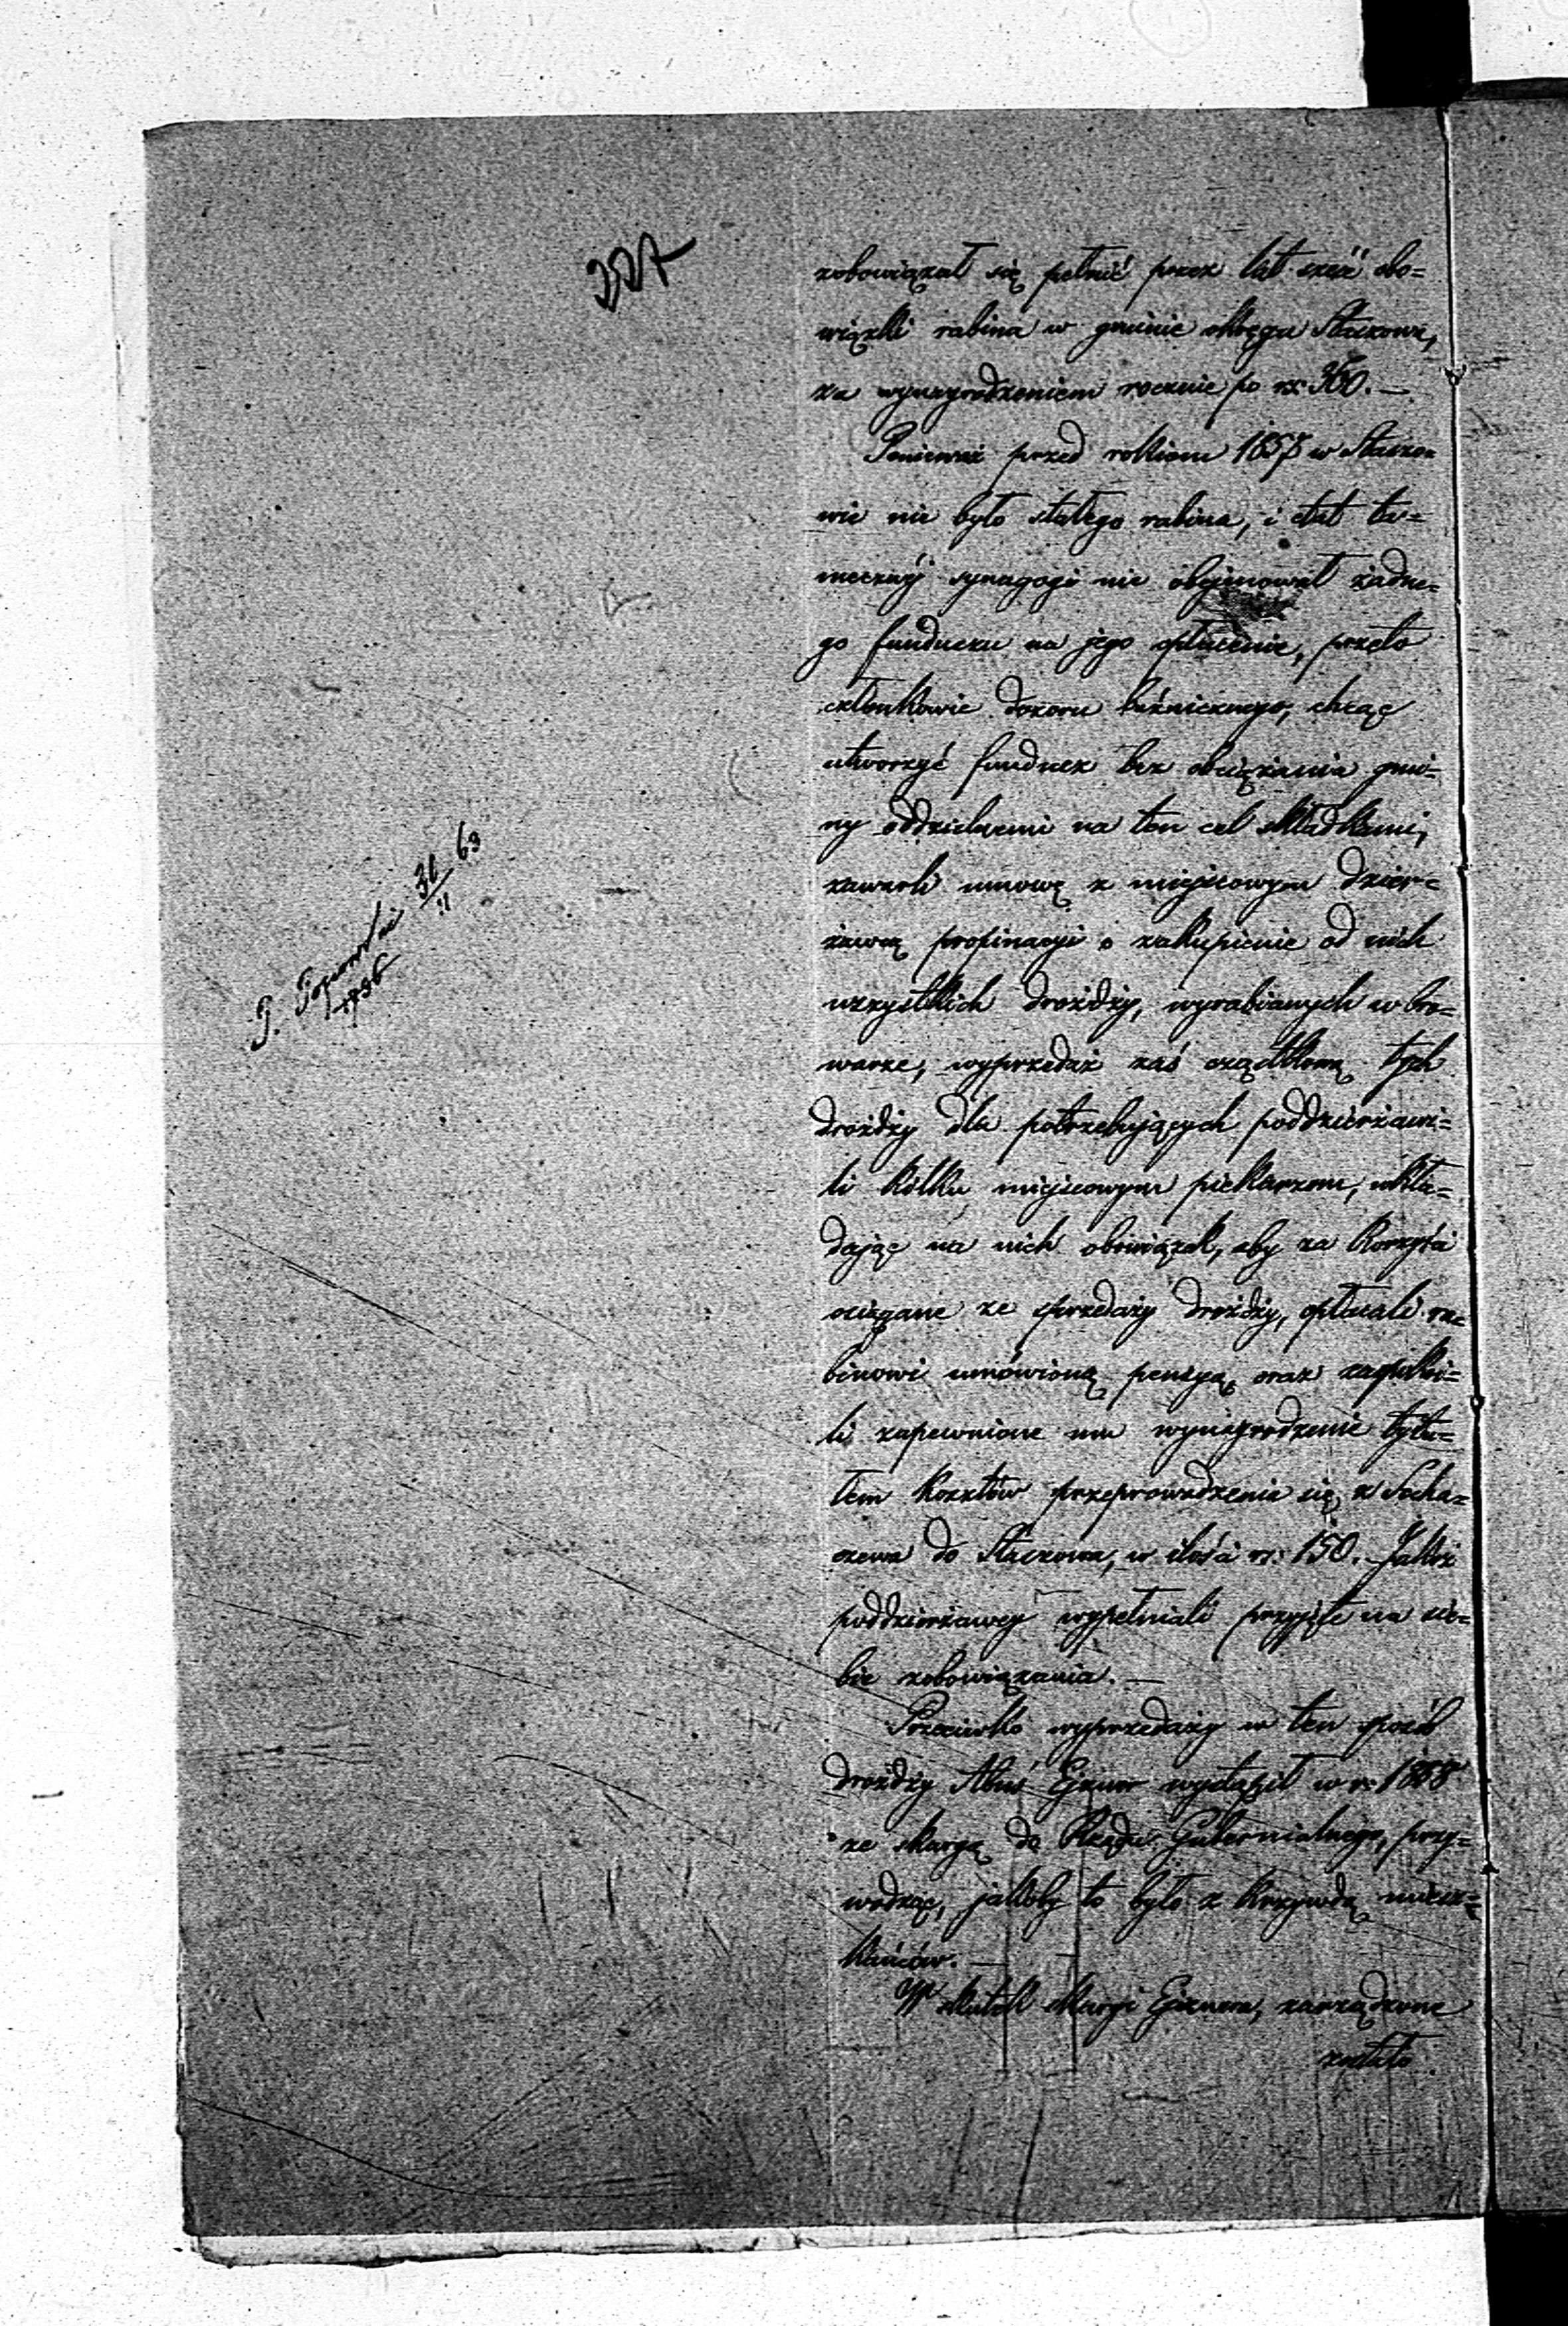 327
zobowiązał się pełnić przez lat sześć obo=
wiązki rabina w gminie okręgu Staszowa,
za wynagrodzeniem rocznie po rs: 360. —
Ponieważ przed rokiem 1857 w Staszo=
wie nie było stałego rabina, i etat ta=
mecznéj synagogi nie obejmował żadne=
go funduszu na jego opłacenie, przeto
członkowie dozoru bóżnicznego, chcąc
utworzyć fundusz bez obciążania gmi=
ny oddzielnemi na ten cel składkami,
zawarli umowę z miejscowym dzier=
żawcą propinacyi o zakupienie od nich
wszystkich drożdży, wyrabianych w bro=
warze, wyprzedaż zaś cząstkową tych
drożdży dla potrzebujących poddzierżawi=
li kilku miejscowym piekarzom, wkła=
dając na nich obowiązek, aby za korzyści
osiągane ze sprzedaży drożdży, opłacali ra=
binowi umówioną pensyą, oraz zaspokoi=
li zapewnione mu wynagrodzenie tytu=
łem kosztów przeprowadzenia się z Socha=
czewa do Staszowa, w ilości rs: 150. Jakoż
poddzierżawcy wypełniali przyjęte na sie=
bie zobowiązania. —
Przeciwko wyprzedaży w ten sposób
drożdży Abuś Ejzner wystąpił w r: 1858
ze skargą do Rządu Gubernialnego, przy=
wodząc, jakoby to było z krzywdą miesz=
kańców. —
W skutek skargi Ejznera, zarządzone
zostało